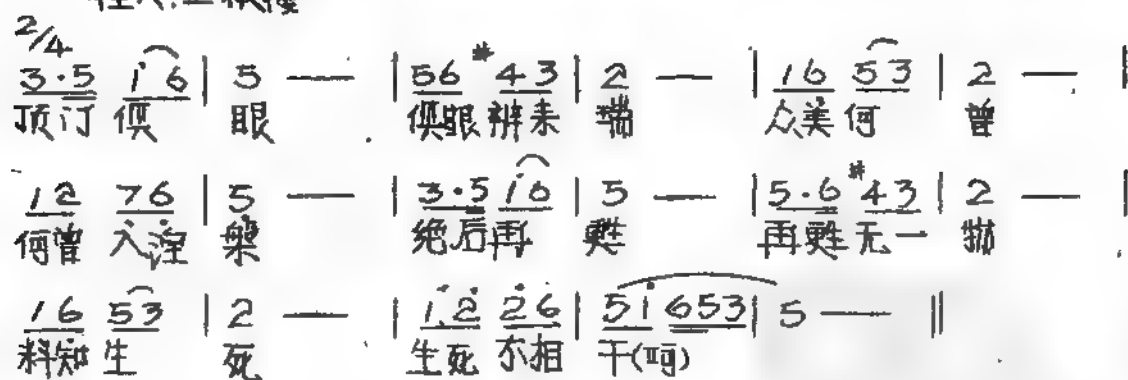 2/4
3·5 i 6 | 5 — | 56 #43 | 2 — | 16 53 | 2 — |
顶门俱 眼 俱眼辨来 端 众美何 曾
12 76 | 5 — | 3·5 i6 | 5 — | 5·6 #43 | 2 — |
何曾入涅 槃 绝后再 甦 再甦无一 物
16 53 | 2 — | i2 26 | 5i 653 | 5 — ||
料知生 死 生死不相 干(呵)